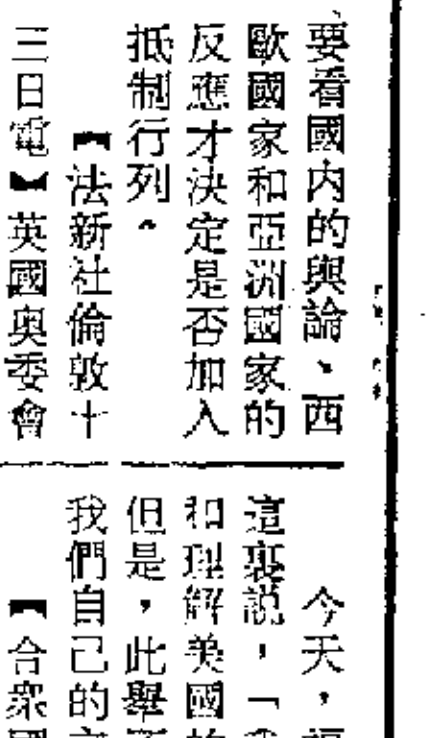 要看國內的輿論、西
歐國家和亞洲國家的
反應才決定是否加入
抵制行列。
【法新社倫敦十
三日電】英國奥委會
今天，
這裏說，「
和理解美國
但是，此舉
我們自己的
【合衆